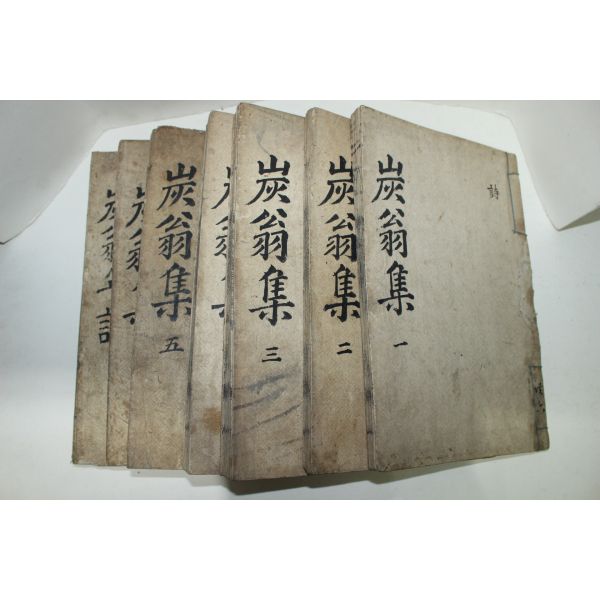 炭翁集 一
詩
炭翁集 二
炭翁集 三
炭翁集
炭翁集 五
炭翁
炭翁年譜